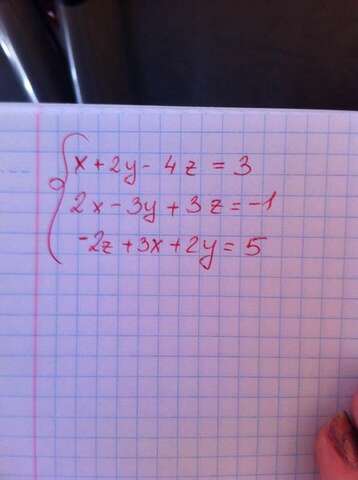 x + 2y - 4z = 3
2x - 3y + 3z = -1
-2z + 3x + 2y = 5